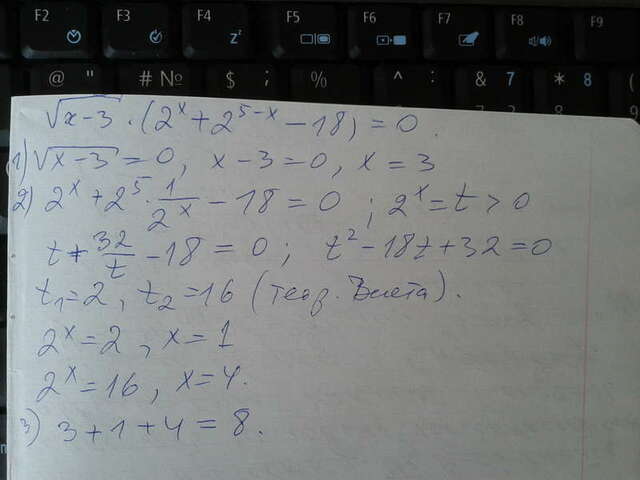 F2 F3 F4 F5 F6 F7 F8 F9
z^z
@ " # № $ ; % ^ : & 7 * 8
√(x-3) · (2^x + 2^(5-x) - 18) = 0.
1) √(x-3) = 0, x - 3 = 0, x = 3
2) 2^x + 2^5 · 1/2^x - 18 = 0 ; 2^x = t > 0
t + 32/t - 18 = 0 ; t^2 - 18t + 32 = 0
t₁ = 2, t₂ = 16 (теор. Виета).
2^x = 2, x = 1
2^x = 16, x = 4.
3) 3 + 1 + 4 = 8.